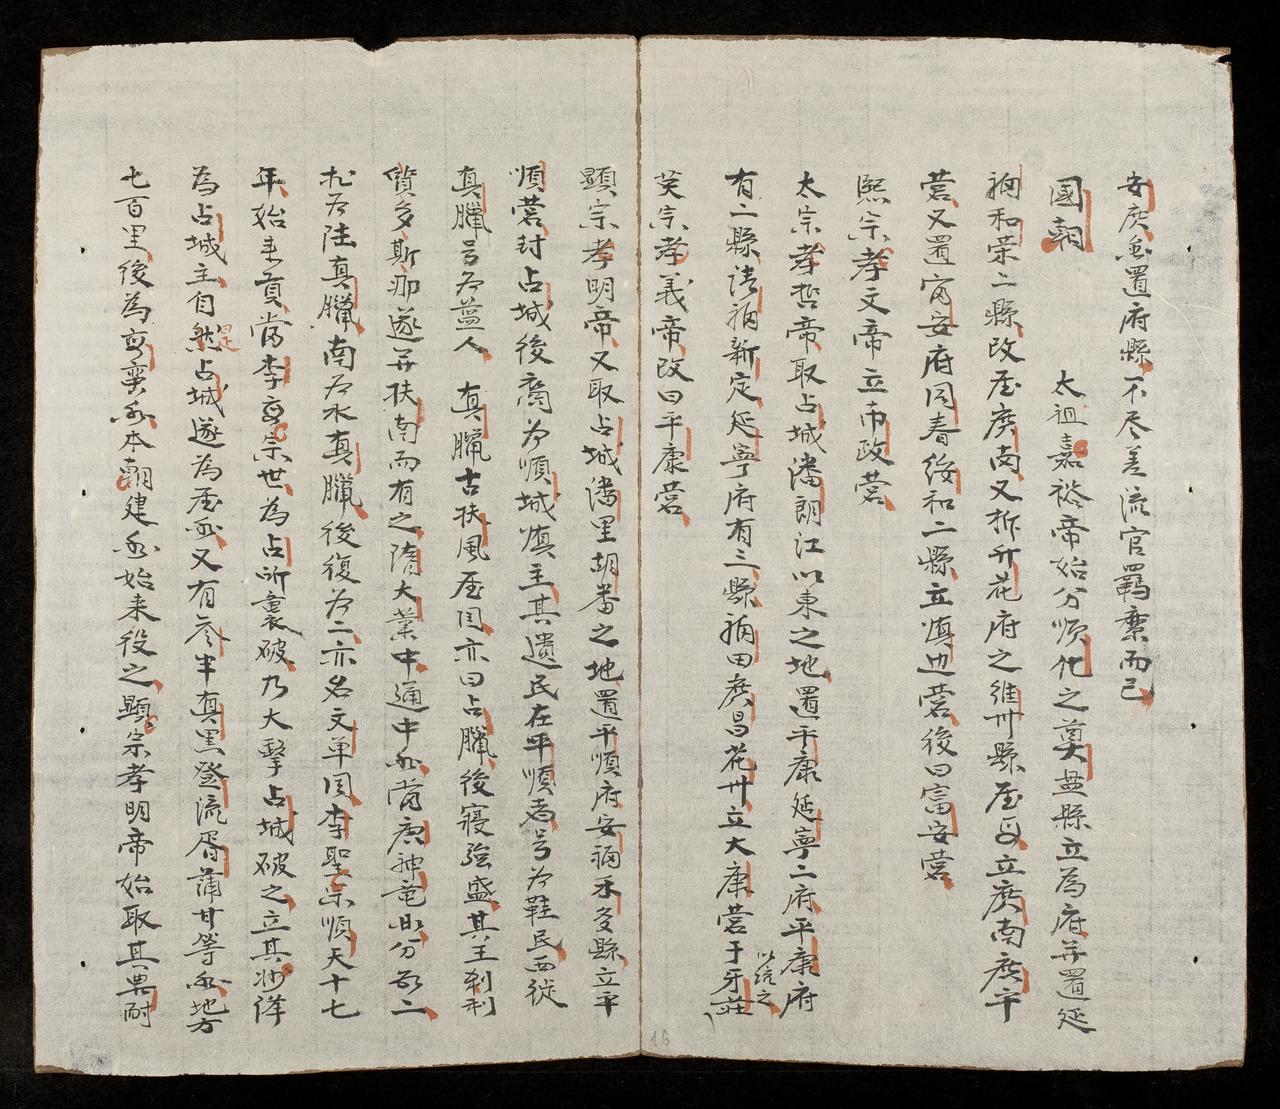 安廣並置府縣不尽差流官羈縻而已
國朝 太祖嘉裕帝始分順化之奠盤縣立為府并置延
福和荣二縣改屬廣南又拆升花府之維川縣屬立廣南廣平
营又置富安府同春綏和二縣立鎮边营後曰富安营
熙宗孝文帝立布政营
太宗孝哲帝取占城潘朗江以東之地置平康延寧二府平康府
有二縣清福新定延寧府有三縣福田廣昌花卅立大康营于牙莊
以統之
英宗孝義帝改曰平康营
顯宗孝明帝又取占城潘里胡番之地置平順府安福禾多縣立平
順营封占城後裔为順城鎮主其遺民在平順者号为鞋民西從
真臘号为盆人 真臘古扶風屬国亦曰占臘後寖強盛其王刹利
質多斯那遂并扶南而有之隋大業中通中國唐神竜以分为二
北为陸真臘南为水真臘後復为二亦名文单国李聖宗順天十七
年始來貢当李高宗世为占所襲破乃大擊占城破之立其将
為占城主自是然占城遂為屬國又有參半真里登流眉蒲甘等國地方
七百里後為國本朝建國始来役之顯宗孝明帝始取其農耐